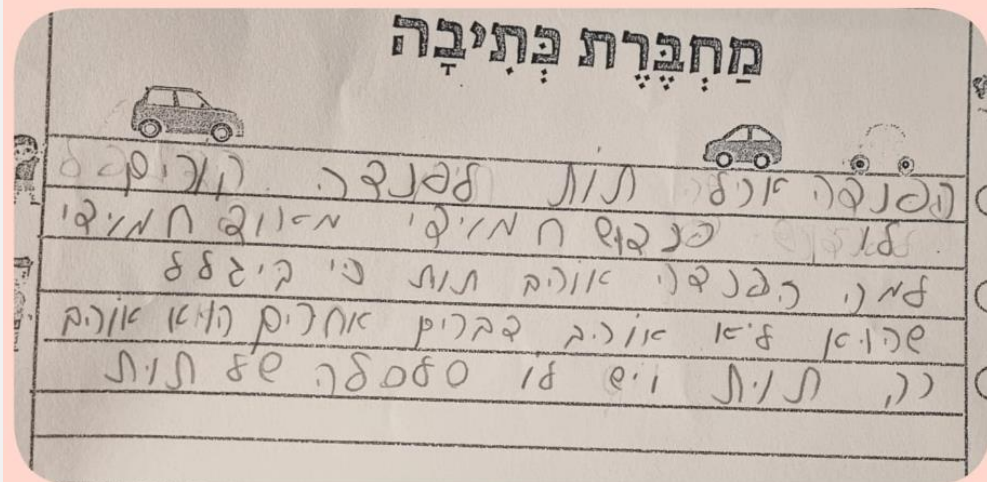 מַחְבֶּרֶת כְּתִיבָה
הפנדה אכלה תות לפנדה קוראים
לו פנדוש חמוידי מאוד חמוידי
למה הפנדה אוהב תות כי ביגלל
שהוא לא אוהב דברים אחרים הוא אוהב
רק תות ויש לו סלסלה של תות